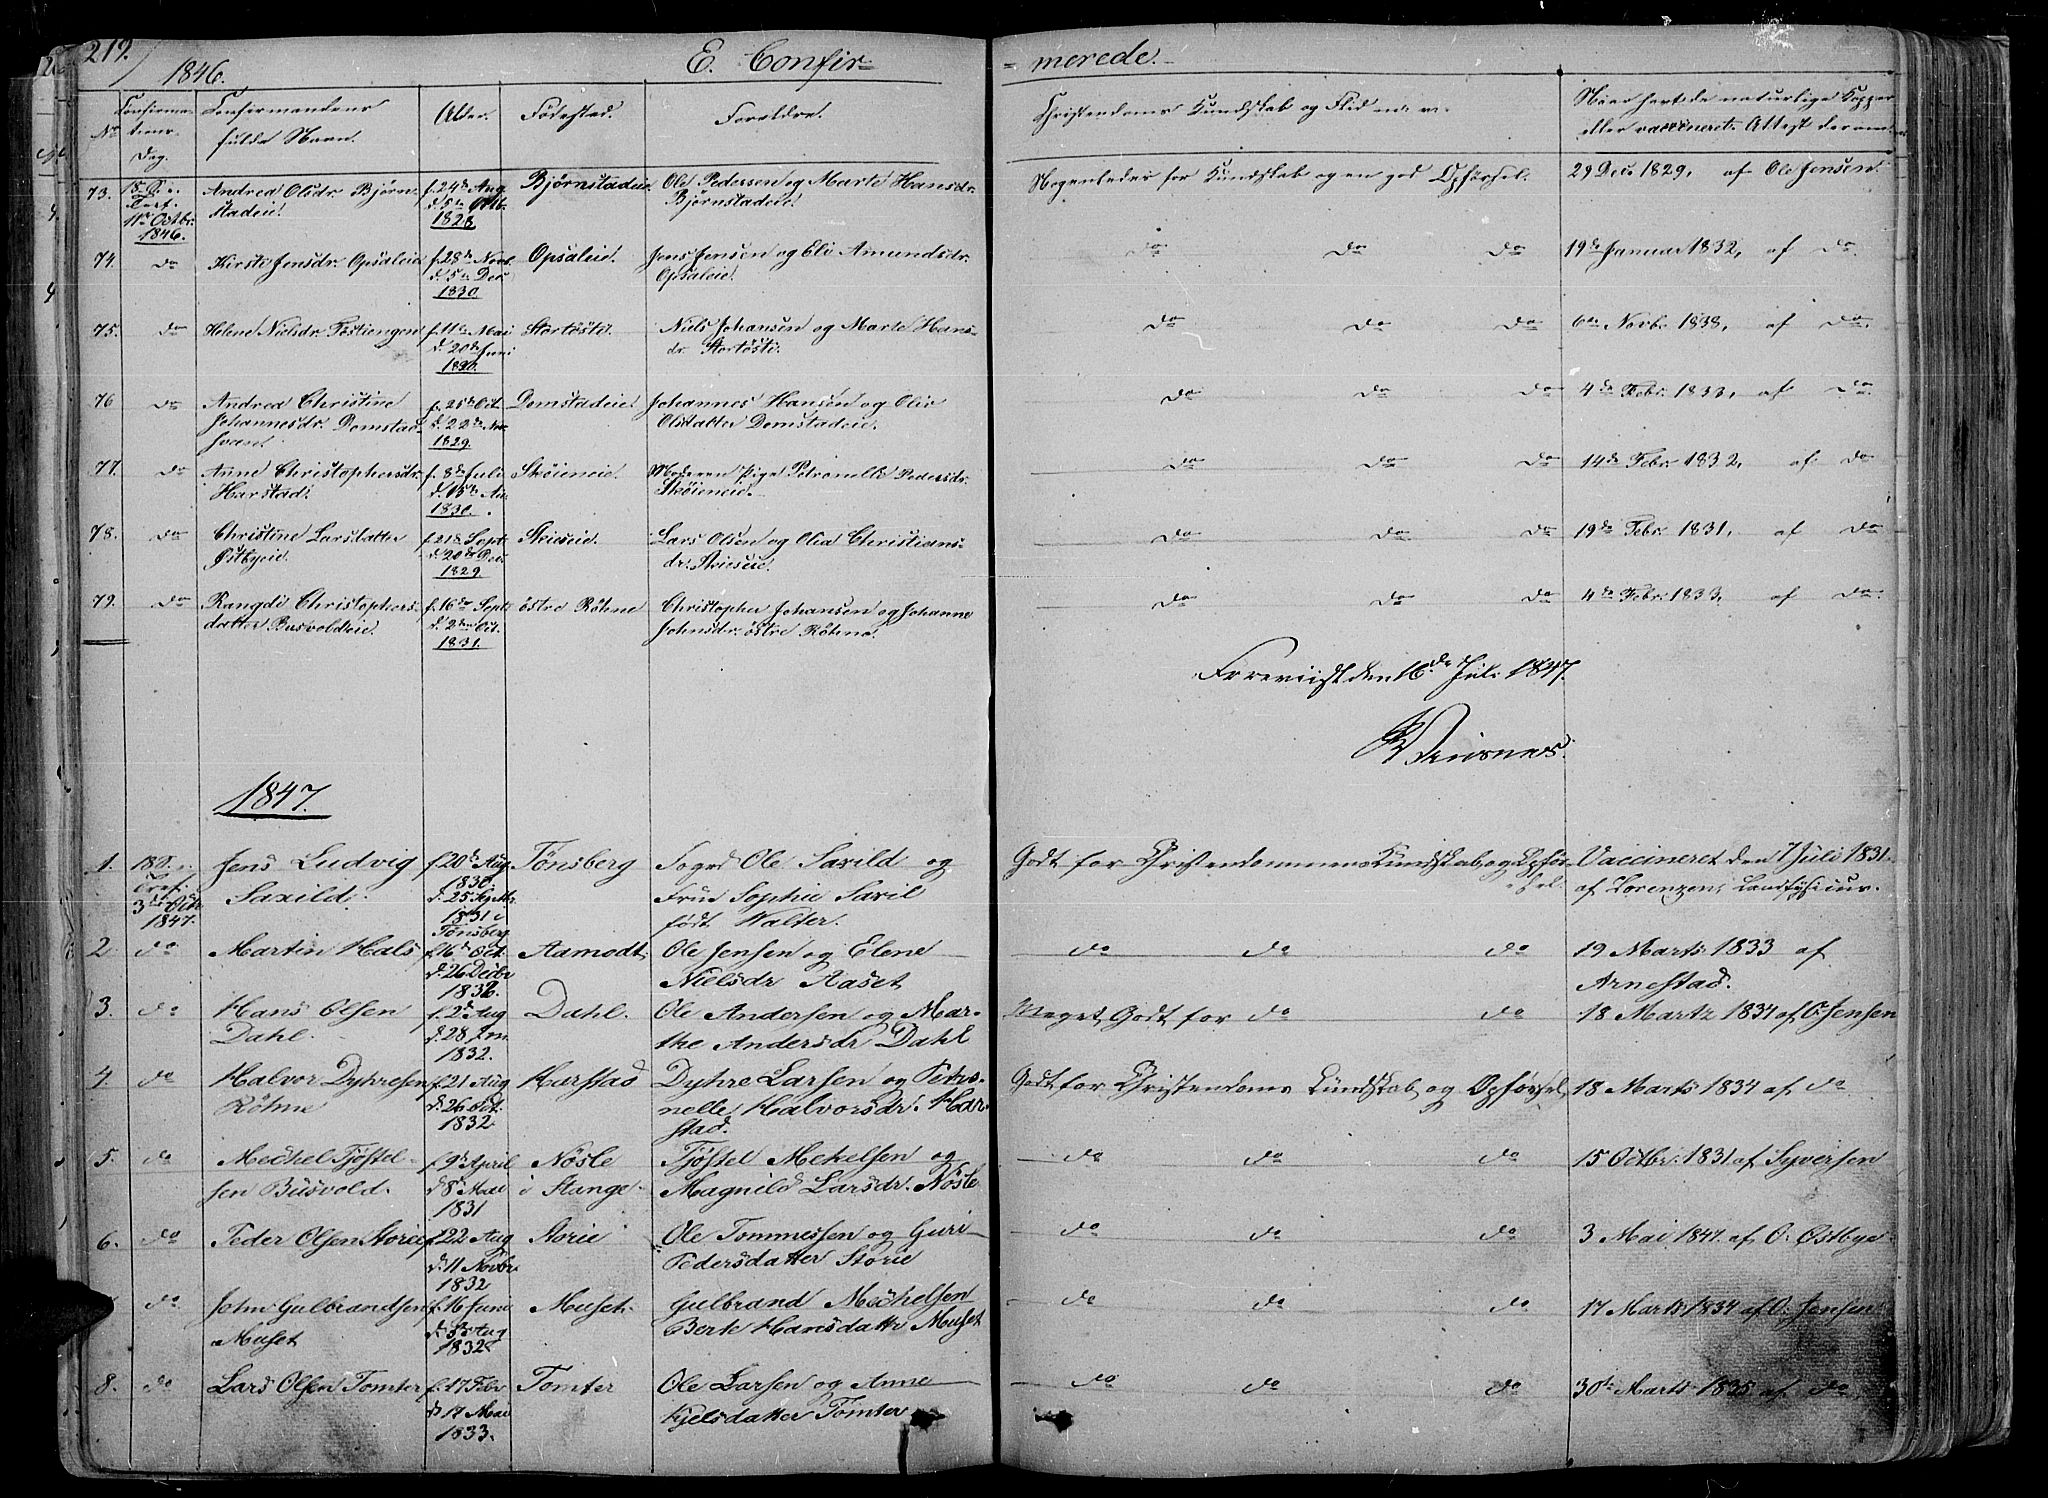 219.
1846.
E. Confir-
-merede.
No
Confirma-
tions-
Dag.
Confirmandens
fulde Navn.
Alder.
Fødested.
Forældre.
Christendoms Kundskab og Flid m. v.
Naar havt de naturlige Kopper
eller vaccineret. Attest derom
73.
11te Octbr.
1846.
Andrea Olsdr. Bjørn-
stadeie.
f. 24de Aug
1828
Bjørnstadeie.
Ole Pedersen og Marte Hansdr.
Bjørnstadeie.
Nogenledes for Kundskab og en god Opførsel.
29 Dec. 1829, af Ole Jensen.
74.
do
Kirsti Jensdr. Opsaleie
f. 28de Novb.
d. 5te Dec.
1830
Opsaleie.
Jens Jensen og Eli Amundsdr.
Opsaleie.
do do do
19de Januar 1832, af do.
75.
do
Helene Nielsdr.
f. 11te Mai
d. 20de Juni
Stortøsti.
Niels Johansen og Marte Hans-
dr. Stortøsti.
do do do
6te Novb. 1838, af do.
76
do
Andrea Christine
Johannesdr. Domstad-
f. 25de Oct.
d. 22de Nov.
1829.
Domstadeie
Johannes Hansen og Olia
Olsdatter Domstadeie.
do do do
4de Febr. 1833, af do.
77.
do
Anne Christophersdr.
Harstad.
f. 8de Juli
d. 15de Au.
1830.
Skøieneie.
Moderen Pige Petronelle Pedersdr.
Skøieneie.
do do do
14de Febr. 1832, af do
78.
do
Christine Larsdatter
Østbyeie.
f. 21de Sept.
d. 20de Dec.
1829.
Skieseie.
Lars Olsen og Olia Christians-
dr. Skieseie.
do do do
19de Febr. 1831, af do
79.
do
Rangdi Christophers-
datter Busvoldeie.
f. 16de Sept.
d. 2den Oct.
1831.
østre Røhne
Christopher Johansen og Johanne
Johnsdr. østre Røhne.
do do do
4de Febr. 1833, af do.
Foreviist den 16de Juli 1847.
1847.
1.
3die Octbr
1847.
Jens Ludvig
Saxild.
f. 20de Aug.
1830.
d. 25 Septbr.
1831 i
Tønsberg
Tønsberg
Foged Ole Saxild og
Frue Sophie Saxil
født Walter.
Godt for Christendommens Kundskab og Opfør-
sel.
Vaccineret den 7 Juli 1831.
af Lorenzen, Landfysicus.
2.
do
Martin Hals
f. 16de Oct.
d. 26 Decbr
Aamodt.
Ole Jensen og Elene
Nielsdr Aaset
do do do
19 Marts 1833 af
Arnestad.
3.
do
Hans Olsen
Dahl.
f. 2de Aug
1832.
Dahl.
Ole Andersen og Mar-
the Andersdr Dahl
Meget Godt for do do
18 Marts 1834 af O. Jensen
4.
do
Halvor Dyhresen
Røhne
f. 21 Aug
d. 26 Oct.
1832
Harstad
Dyhre Larsen og Petro-
nelle Halvorsdr. Har-
stad.
Godt for Christendoms Kundskab og Opførsel,
18 Marts 1834 af do
5.
do
Mechel Tjøstel-
sen Busvold.
f. 9de April
d. 8de Mai
1831
Nøsle
i Stange
Tjøstel Mekelsen og
Magnild Larsdr. Nøsle
do do do
15 Octbr. 1831 af Syversen
6.
do
Peder Olsen Storie
f. 22 Aug
d. 11 Novbr
1832
Storie
Ole Tommessen og Guri
Pedersdatter Storie
do do do
3 Mai 1847. af O. Østbye
do
John Gulbrandsen
Muset
f. 16 Juni
d. 5te Aug
1832
Muset.
Gulbrand Mechelsen
Berte Hansdatter Muset
do do do
17 Marts 1834 af O. Jensen
8.
do
Lars Olsen Tomter
f. 17 Febr
d. 17 Mai
1833.
Tomter
Ole Larsen og Anne
Kjelsdatter Tomter
do do do
30te Marts 1835 af do